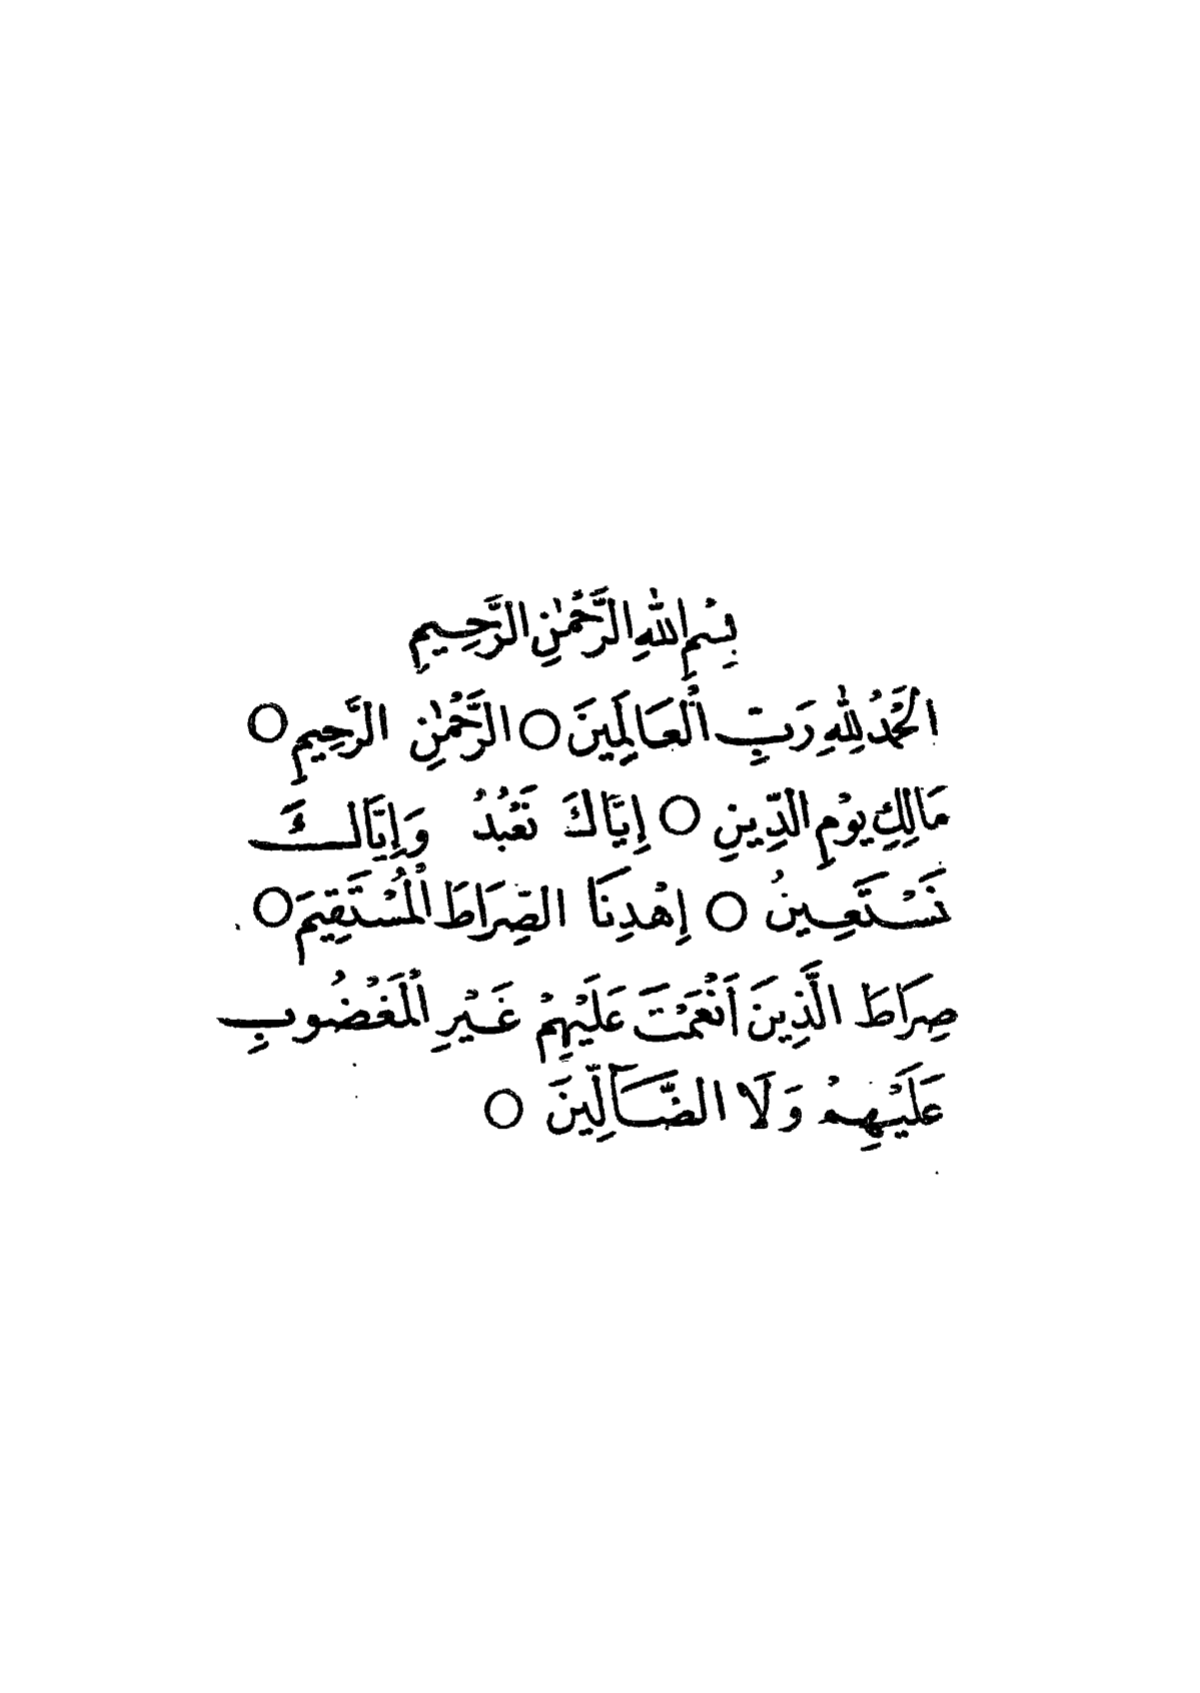 بِسْمِ اللهِ الرَّحْمٰنِ الرَّحِيمِ
الْحَمْدُ لِلّٰهِ رَبِّ الْعَالَمِينَ ○ الرَّحْمٰنِ الرَّحِيمِ ○
مَالِكِ يَوْمِ الدِّينِ ○ إِيَّاكَ نَعْبُدُ وَإِيَّاكَ
نَسْتَعِينُ ○ إِهْدِنَا الصِّرَاطَ الْمُسْتَقِيمَ ○
صِرَاطَ الَّذِينَ أَنْعَمْتَ عَلَيْهِمْ غَيْرِ الْمَغْضُوبِ
عَلَيْهِمْ وَلَا الضَّآلِّينَ ○